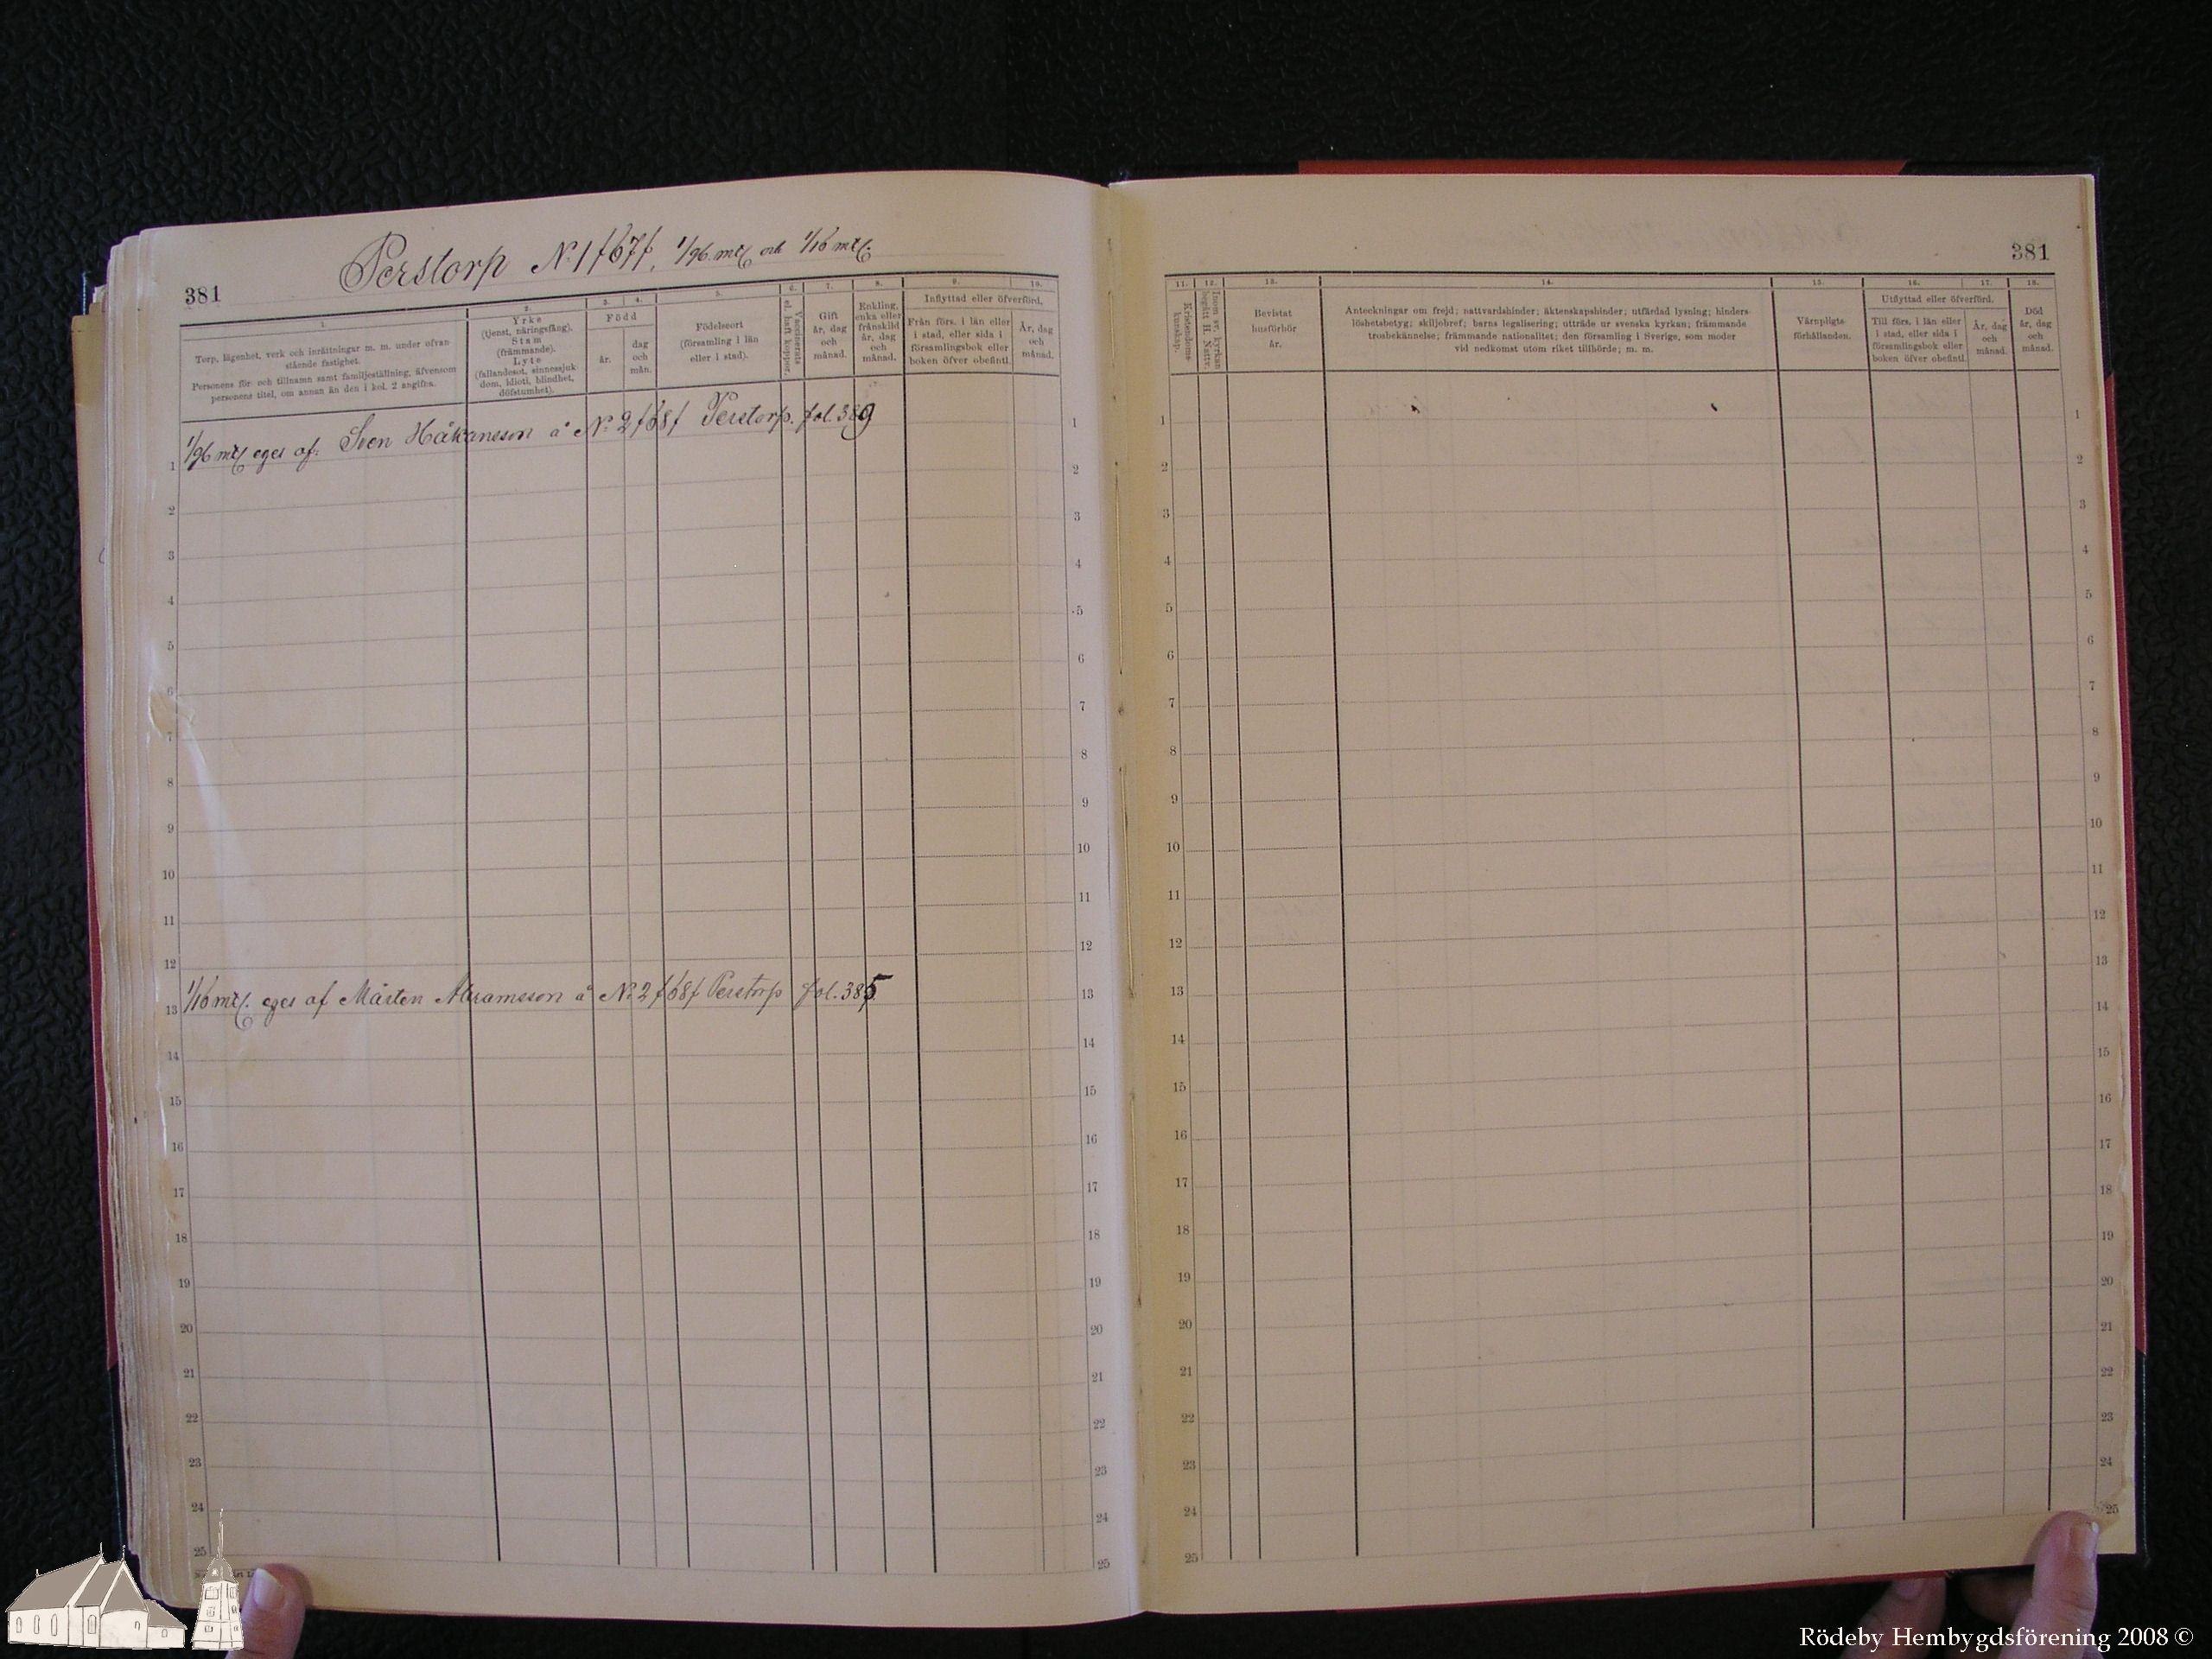 Perstorp N:1 f67f, 1/96 mtl och 1/16 mtl.
381
1.
2.
3.
4.
5.
6.
7.
8.
9.
10.
Torp, lägenhet, verk och inrättningar m. m. under ofvan-
stående fastighet.
Personens för- och tillnamn samt familjeställning, äfvensom
personens titel, om annan än den i kol. 2 angifna.
Yrke
(tjenst, näringsfång).
Stam
(främmande).
Lyte
(fallandesot, sinnessjuk-
dom, idioti, blindhet,
döfstumhet).
Född
år.
dag
och
mån.
Födelseort
(församling i län
eller i stad).
Vaccinerats
el. haft koppor.
Gift
år, dag
och
månad.
Enkling,
enka eller
frånskild
år, dag
och
månad.
Inflyttad eller öfverförd.
Från förs. i län eller
i stad, eller sida i
församlingsbok eller
boken öfver obefintl.
År, dag
och
månad.
1/96 mtl eges af. Sven Håkansson å N: 2 f68f Perstorp. fol. 389
1/16 mtl. eges af Mårten Abramsson å N: 2 f68f Perstorp fol. 385
1
2
3
4
5
6
7
8
9
10
11
12
13
14
15
16
17
18
19
20
21
22
23
24
25
1
2
3
4
5
6
7
8
9
10
11
12
13
14
15
16
17
18
19
20
21
22
23
24
25
381
11.
12.
13.
14.
15.
16.
17.
18.
Kristendoms-
kunskap.
Inom sv. kyrkan
begått H. Nattv.
Bevistat
husförhör
år.
Anteckningar om frejd; nattvardshinder; äktenskapshinder; utfärdad lysning; hinders-
löshetsbetyg; skiljobref; barns legalisering; utträde ur svenska kyrkan; främmande
trosbekännelse; främmande nationalitet; den församling i Sverige, som moder
vid nedkomst utom riket tillhörde; m. m.
Värnpligts-
förhållanden.
Utflyttad eller öfverförd.
Till förs. i län eller
i stad, eller sida i
församlingsbok eller
boken öfver obefintl.
År, dag
och
månad.
Död
år, dag
och
månad.
1
2
3
4
5
6
7
8
9
10
11
12
13
14
15
16
17
18
19
20
21
22
23
24
25
1
2
3
4
5
6
7
8
9
10
11
12
13
14
15
16
17
18
19
20
21
22
23
24
25
Rödeby Hembygdsförening 2008 ©